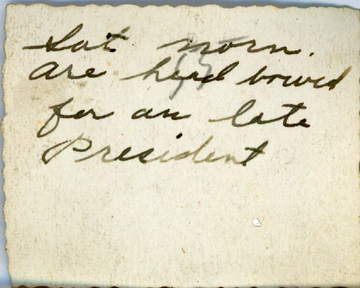 Sat morn.
are head bowed
for an late
President